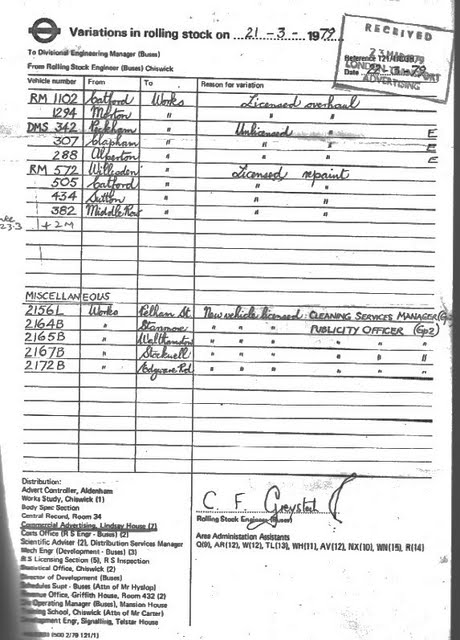 Variations in rolling stock on 21-3-1979
RECEIVED
23 MAR 1979
LONDON TRANSPORT
ADVERTISING
To Divisional Engineering Manager (Buses)
Reference 121/
Date 22-3-79
From Rolling Stock Engineer (Buses) Chiswick
Vehicle number From To Reason for variation
RM 1102 Catford Works Licensed overhaul
1294 Merton " " "
DMS 342 Peckham " Unlicensed " E
307 Clapham " " " E
288 Alperton " " " E
RM 572 Willesden " Licensed repaint
505 Catford " " "
434 Sutton " " "
382 Middle Row " " "
23.3
1+2M
MISCELLANEOUS
2156L Works Pelham St. New vehicle licensed: CLEANING SERVICES MANAGER (Gp
2164B " Stanmore " " " PUBLICITY OFFICER (Gp2)
2165B " Walthamstow " " " " " "
2167B " Stockwell " " " " " "
2172B " Edgware Rd " " " " " "
Distribution:
Advert Controller, Aldenham
Works Study, Chiswick (1)
Body Spec Section
Central Record, Room 34
Commercial Advertising, Lindsay House (2)
Costs Office (R S Engr - Buses) (2)
Scientific Adviser (2), Distribution Services Manager
Mech Engr (Development - Buses) (3)
R S Licensing Section (5), R S Inspection
Statistical Office, Chiswick (2)
Director of Development (Buses)
Schedules Supt - Buses (Attn of Mr Hyslop)
Revenue Office, Griffith House, Room 432 (2)
Operating Manager (Buses), Mansion House
Training School, Chiswick (Attn of Mr Carter)
Development Engr, Signalling, Telstar House
C F Greysted
Rolling Stock Engineer (Buses)
Area Administation Assistants
Q(9), AR(12), W(12), TL(13), WH(11), AV(12), NX(10), WN(15), R(14)
2500 2/79 121/1)